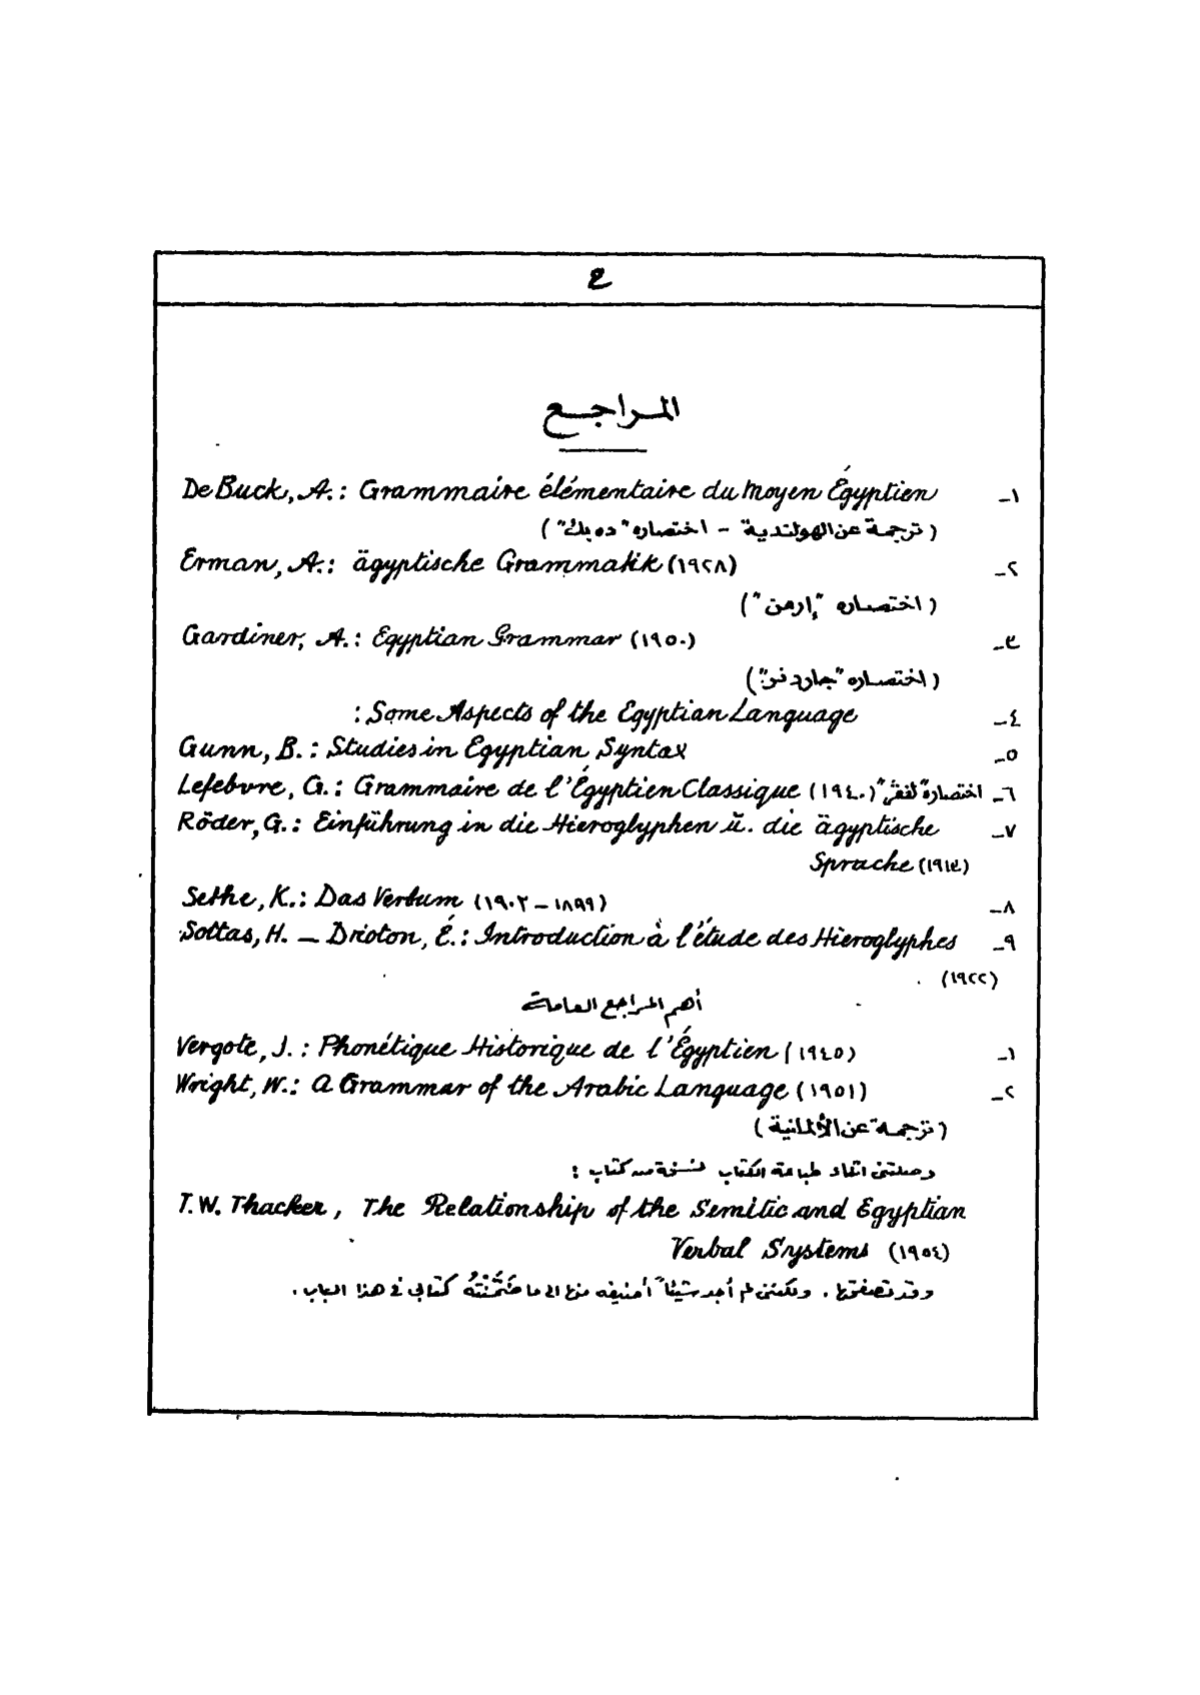 ع
المراجع
١- De Buck, A.: Grammaire élémentaire du Moyen Égyptien
(ترجمة عن الهولندية - اختصاره "ده بك")
٢- Erman, A.: ägyptische Grammatik (١٩٢٨)
(اختصاره "إرمن")
٣- Gardiner, A.: Egyptian Grammar (١٩٥٠)
(اختصاره "جاردنر")
٤- : Some Aspects of the Egyptian Language
٥- Gunn, B.: Studies in Egyptian Syntax
٦- Lefebvre, G.: Grammaire de l'Égyptien Classique (١٩٤٠) اختصاره "لففر"
٧- Röder, G.: Einführung in die Hieroglyphen u. die ägyptische
Sprache (١٩١٣)
٨- Sethe, K.: Das Verbum (١٨٩٩ – ١٩٠٢)
٩- Sottas, H. – Drioton, É.: Introduction à l'étude des Hieroglyphes
(١٩٢٢)
أهم المراجع العامة
١- Vergote, J.: Phonétique Historique de l'Égyptien (١٩٤٥)
٢- Wright, W.: A Grammar of the Arabic Language (١٩٥١)
(ترجمة عن الألمانية)
وصلتنى اثناء طباعة الكتاب نسخة من كتاب :
T.W. Thacker, The Relationship of the Semitic and Egyptian
Verbal Systems (١٩٥٤)
وقد تصفحتها . ولكننى لم أجد شيئاً أضيفه منها الى ما ضَمَّنْتُهُ كتابى فى هذا الباب .